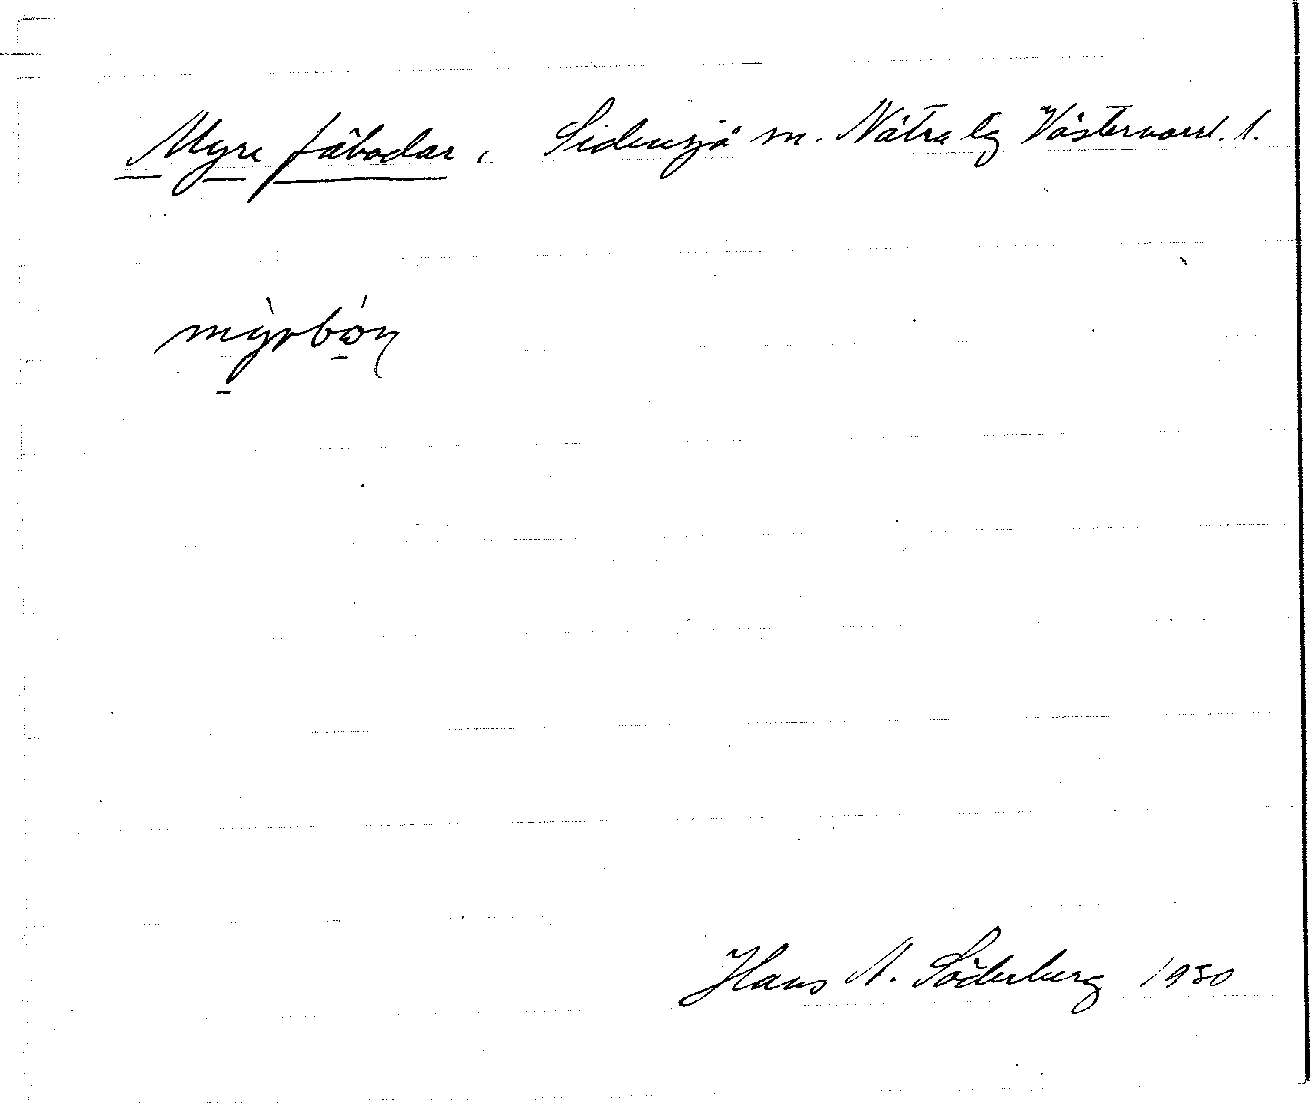 Myre fäbodar, Sidensjö sn. Nätra tg Västernorrl. l.
mẏ̱̀rbǿ̱n
Hans A. Söderberg 1950